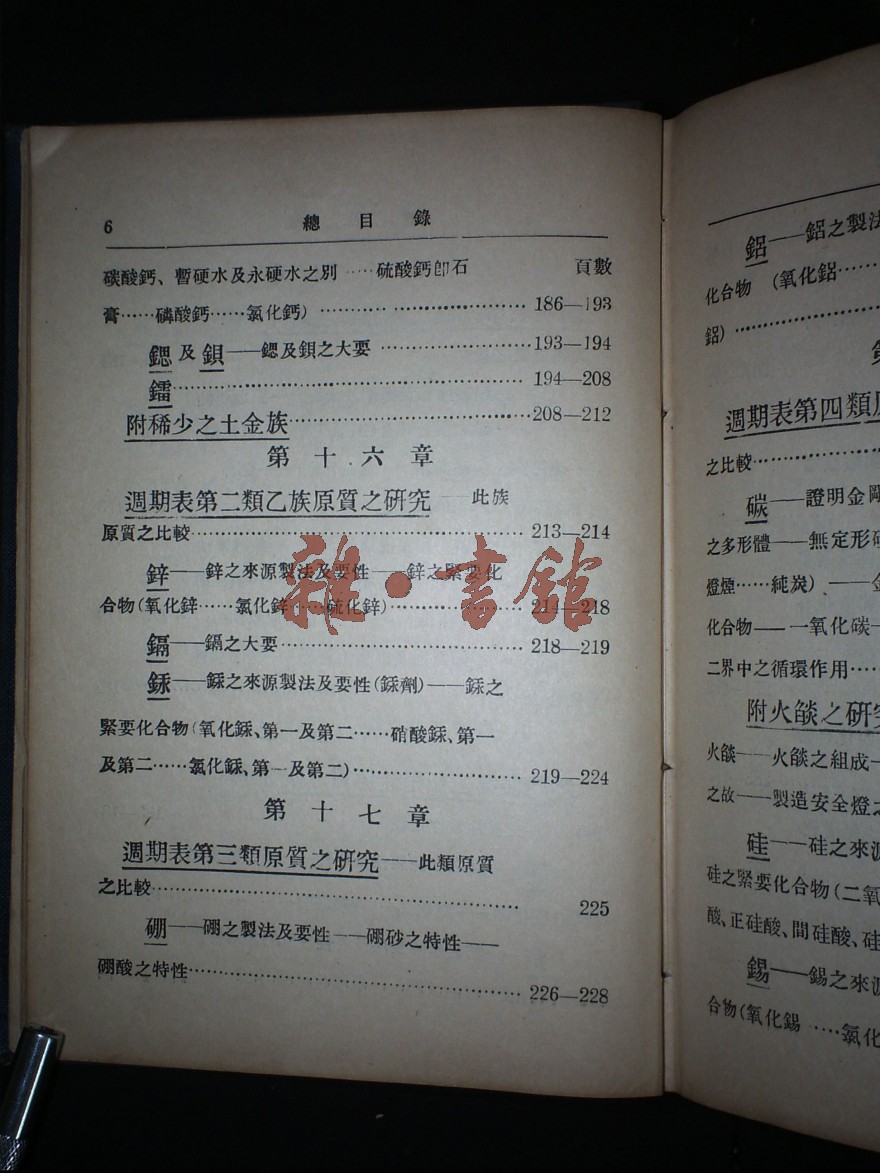 6 總目錄
碳酸鈣、暫硬水及永硬水之別……硫酸鈣卽石 頁數
膏……磷酸鈣……氯化鈣)……………………186—193
鍶及鋇——鍶及鋇之大要……………………193—194
鐳……………………194—208
附稀少之土金族……………………208—212
第十六章
週期表第二類乙族原質之研究——此族
原質之比較……………………213—214
鋅——鋅之來源製法及要性——鋅之緊要化
合物(氧化鋅……氯化鋅……硫化鋅)……………………214—218
鎘——鎘之大要……………………218—219
銾——銾之來源製法及要性(銾劑)——銾之
緊要化合物(氧化銾、第一及第二……硝酸銾、第一
及第二……氯化銾、第一及第二)……………………219—224
第十七章
週期表第三類原質之研究——此類原質
之比較……………………225
硼——硼之製法及要性——硼砂之特性——
硼酸之特性……………………226—228
雜·書館
鋁——鋁之製法
化合物(氧化鋁……
鋁)……………………
週期表第四類
之比較……………………
碳——證明金剛
之多形體——無定形
燈煙……純炭)——
化合物——一氧化碳—
二界中之循環作用……
附火燄之研究
火燄——火燄之組成—
之故——製造安全燈之
硅——硅之來源
硅之緊要化合物(二氧
酸、正硅酸、間硅酸、硅
錫——錫之來源
合物(氧化錫……氯化